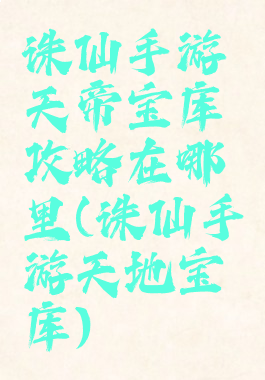 诛仙手游
天帝宝库
攻略在哪
里(诛仙手
游天地宝
库)